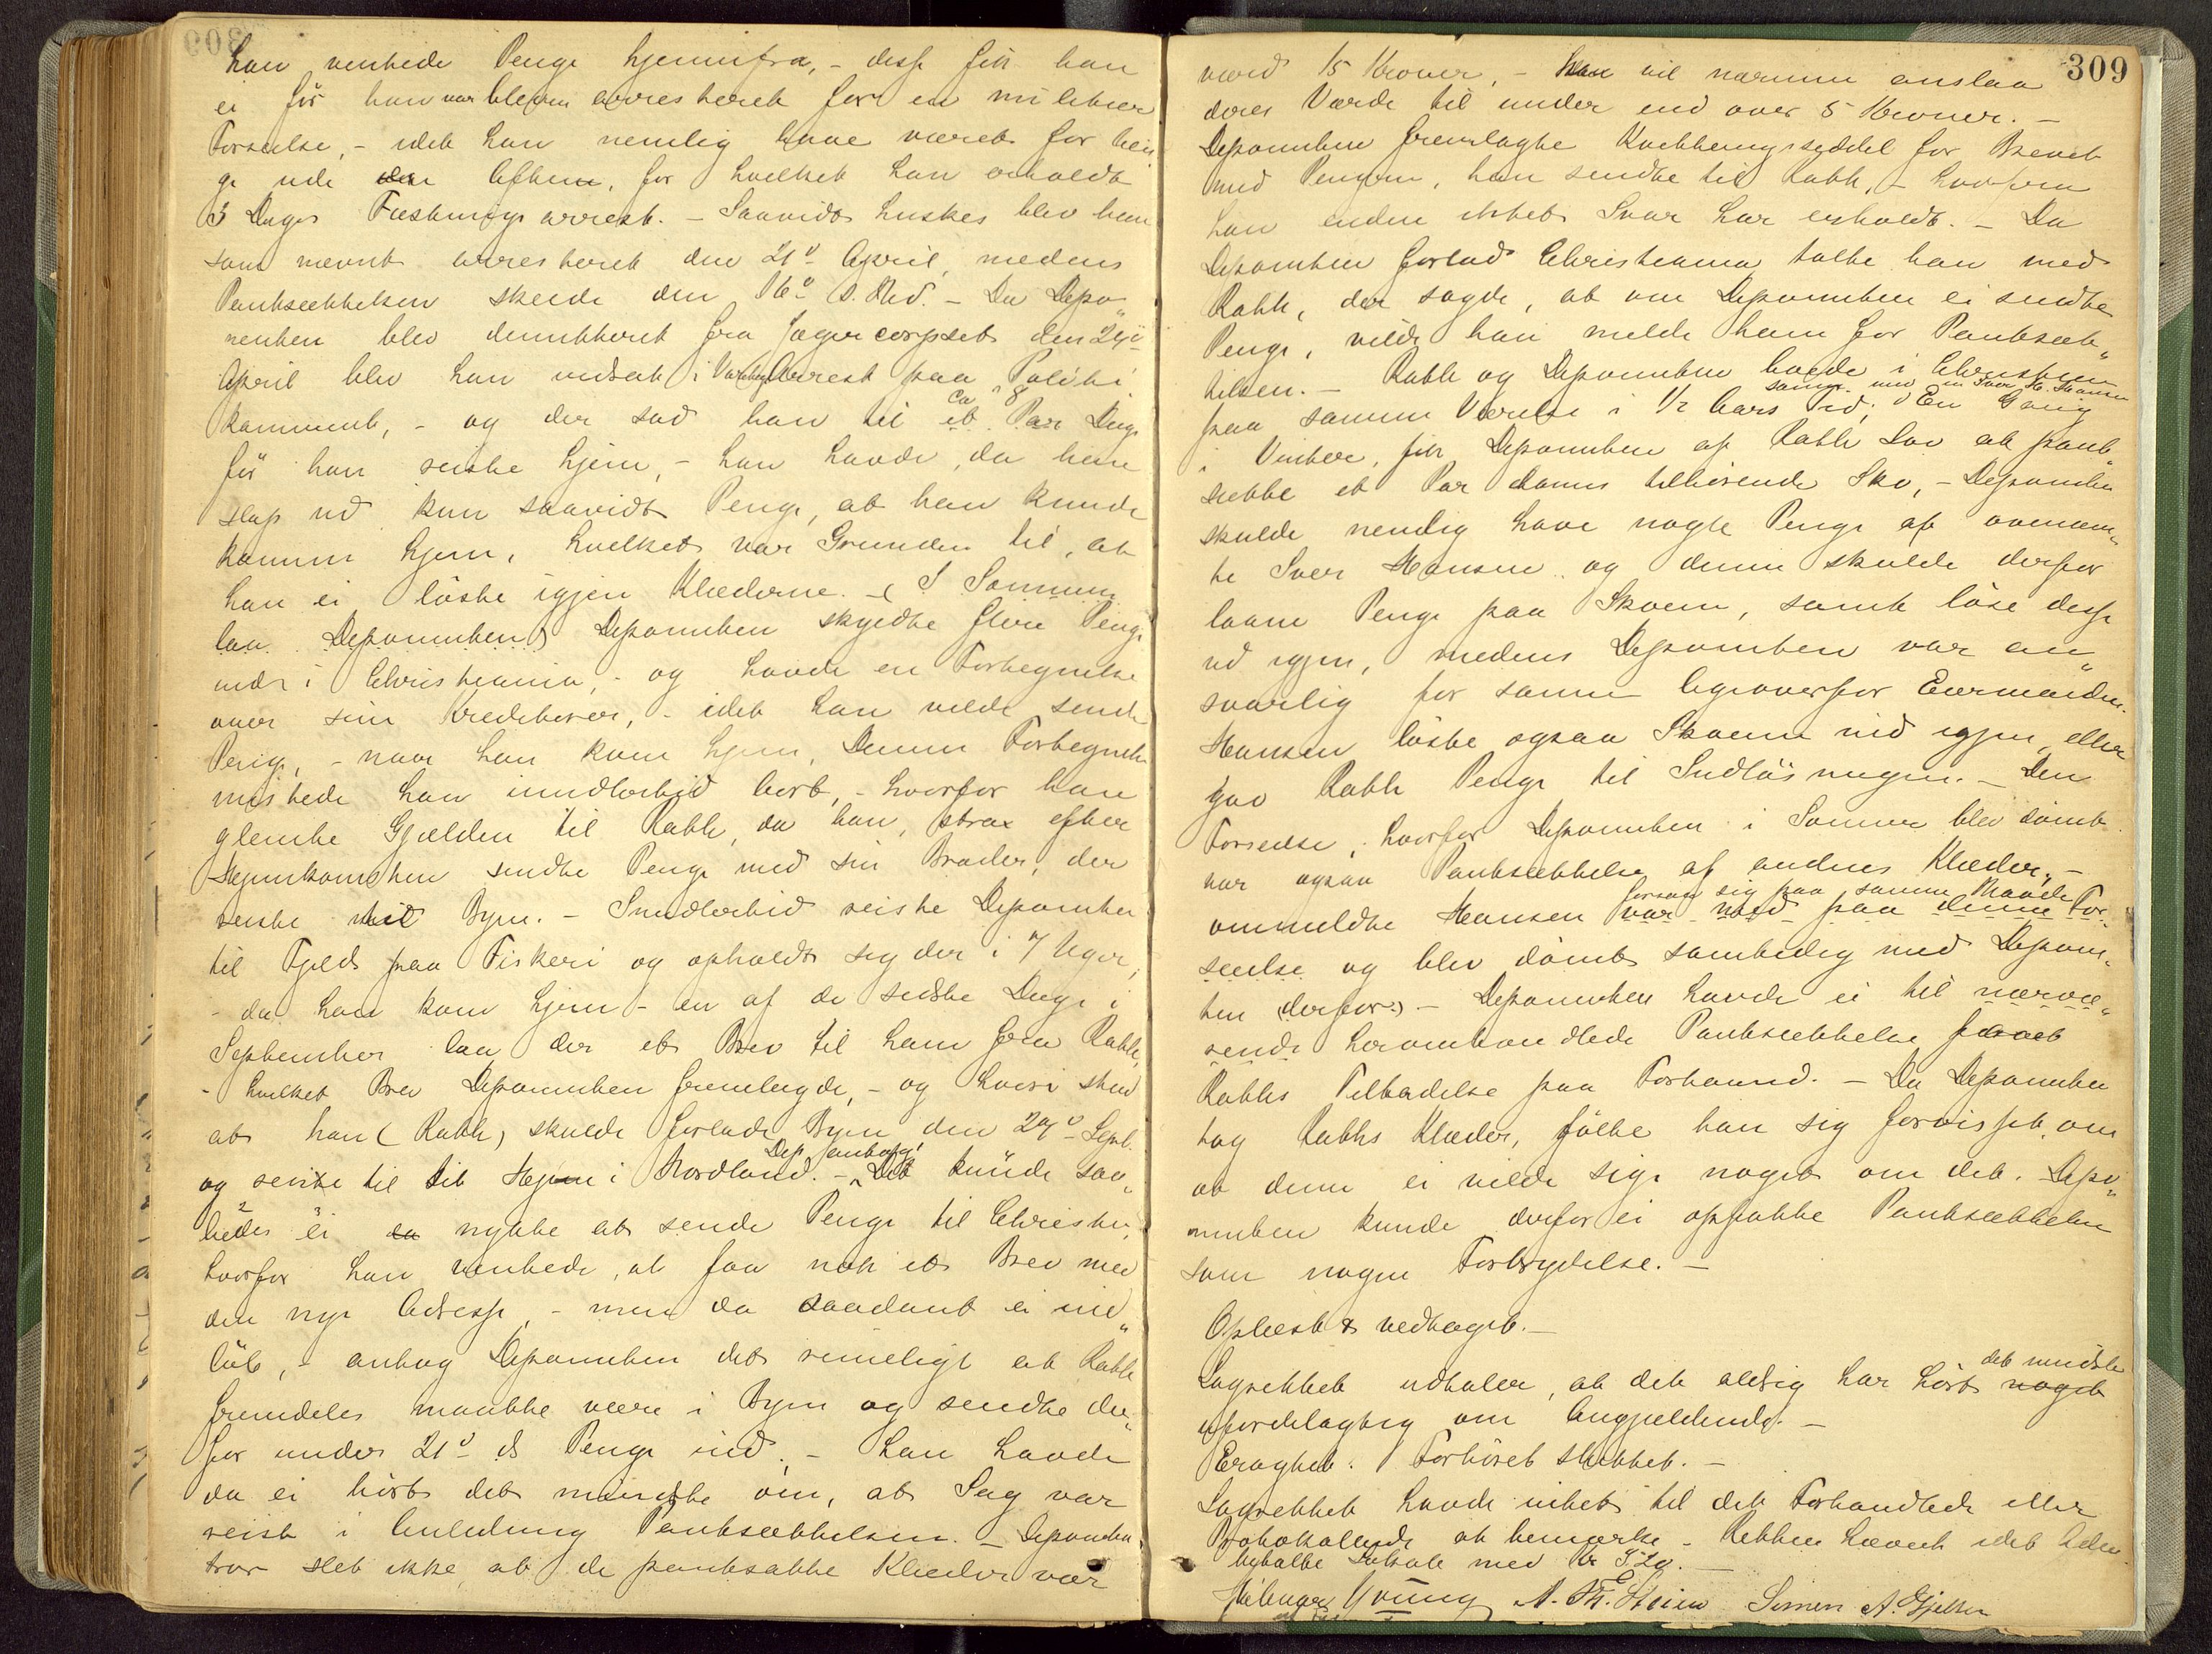 han ventede Penge hjemmefra, - disse fik han
ei før han var bleven arresteret for en militær
Forseelse, - idet han nemlig have været for læn
ge ude om Aftenen, for hvilket han erholdt
3 Dages Fæstnings arrest. - Saavidt huskes blev han
som nævnt arresteret den 21de April, medens
Pantsættelsen skede den 16de s. Md. - Da Depo„
nenten blev dimitteret fra Jægercorpset den 24de
April blev han indsat i Varetægts Arrest paa Politi
kammeret, - og der sad han til ca 8 et Par Dage
før han reiste hjem, - han havde, da han
slap ud kun saavidt Penge, at han kunde
komme hjem, hvilket var Grunden til, at
han ei löste igjen Klæderne. - ( I Sommer
laa Deponenten) Deponenten skyldte flere Penge
inde i Christiania, - og havde en Fortegnelse
over sine Kreditorer, - idet han vilde sende
Penge, - naar han kom hjem, Denne Fortegnelse
mistede han imidlertid bort, - hvorfor han
glemte Gjælden til Rabb, da han, strax efter
Hjemkomsten sendte Penge med sin Broder, der
reiste ind til Byen. - Imidlertid reiste Deponenten
til Fjelds paa Fiskeri og opholdt sig der i 7 Uger,
- da han kom hjem - en af de sidste Dage i
September laa der et Brev til ham fra Rabb,
- hvilket Brev Deponenten fremlagde, - og hvori stod
at han ( Rabb) skulde forlade Byen den 29de Sept.
og reise til sit Hjem i Nordland. - Dep. antog! Det kunde saa„
ledes ei da nytte at sende Penge til Christia,
hvorfor han ventede, at faa nok et Brev med
den nye Adresse, - men da saadant ei ind„
löb, - antog Deponenten det rimeligt at Rabb
fremdeles maatte være i Byen og sendte der„
for under 21de ds Penge ind. - Han havde
da ei hørt det mindste om, at Sag var
reist i Anledning Pantsættelsen. - Deponenten
tror slet ikke at de pantsatte Klæder var
309
værd 15 Kroner, - Han vil nærmere anslaa
deres Værdi til under end over 5 Kroner. -
Deponenten fremlagte Kvitteringsseddel for Brevet
med Pengene, han sendte til Rabb, - hvorfra
han endnu intet Svar har erholdt. - Da
Deponenten forlod Christiania talte han med
Rabb, der sagde, at om Deponenten ei sendte
Penge, vilde han melde ham for Pantsæt„
telsen. - Rabb og Deponenten boede i Christiania
paa samme Værelse i 1/2 Aars Tid; samm. med en Iver H. Hansen En Gang
i Vinter, fik Deponenten af Rabb Lov at pant„
sætte et Par dennes tilhørende Sko, - Deponenten
skulde nemlig have nogle Penge af ovennævn„
te Iver Hansen og denne skulde derfor
laane Penge paa Skoene, samt löse disse
ud igjen, medens Deponenten var an„
svarlig for samme ligeoverfor Eiermanden.
Hansen löste ogsaa Skoene ind igjen eller
gav Rabb Penge til Indløsningen. - Den
Forseelse, hvorfor Deponenten i Sommer blev dömt
var ogsaa Pantsættelse af andres Klæder, -
ommeldte Hansen forsaa sig paa samme Maade var med paa denne For„
seelse og blev dömt samtidig med Deponen„
ten (derfor.) - Deponenten havde ei til nærvæ„
rende heromhandlede Pantsættelse faaet
Rabbs Tilladelse paa Forhaand. - Da Deponenten
tog Rabbs Klæder, følte han sig forvisset om
at denne ei vilde sige noget om det. - Depo„
nenten kunde derfor ei opfatte Pantsættelsen
som nogen Forbrydelse. -
Oplæst & vedtaget. -
Lagrettet udtaler, at det aldrig har hørt det mindste noget
ufordelagtig om Angjældende. -
Fragtet. Forhöret sluttet. -
Lagrettet havde intet til det Forhandlede eller
Protokollerede at bemærke. - Retten hævet idet
betalte Lokale med Kr
Hilmar Young A. Th. Stein Simen A. Gjelten